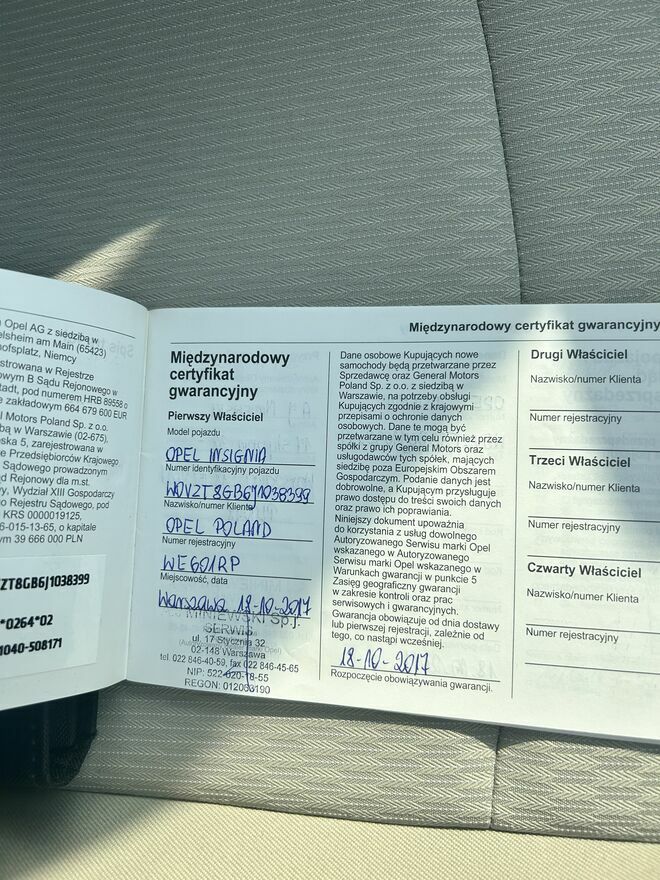 Opel AG z siedzibą w
elsheim am Main (65423)
hofsplatz, Niemcy
strowana w Rejestrze
owym B Sądu Rejonowego w
tadt, pod numerem HRB 89558 o
e zakładowym 664 679 600 EUR
l Motors Poland Sp. z o.o.
bą w Warszawie (02-675),
ska 5, zarejestrowana w
e Przedsiębiorców Krajowego
Sądowego prowadzonym
d Rejonowy dla m.st.
y, Wydział XIII Gospodarczy
o Rejestru Sądowego, pod
KRS 0000019125,
6-015-13-65, o kapitale
ym 39 666 000 PLN
ZT8GB6J1038399
*0264*02
1040-508171
Międzynarodowy certyfikat gwarancyjny
Międzynarodowy
certyfikat
gwarancyjny
Pierwszy Właściciel
Model pojazdu
OPEL INSIGNIA
Numer identyfikacyjny pojazdu
W0VZT8GB6J1038399
Nazwisko/numer Klienta
OPEL POLAND
Numer rejestracyjny
WE601RP
Miejscowość, data
Warszawa 18-10-2017
NIEWSKI Sp.j.
SERWIS
ul. 17 Stycznia 32
02-148 Warszawa
tel. 022 846-40-59, fax 022 846-45-65
NIP: 522-020-78-55
REGON: 012083190
Dane osobowe Kupujących nowe
samochody będą przetwarzane przez
Sprzedawcę oraz General Motors
Poland Sp. z o.o. z siedzibą w
Warszawie, na potrzeby obsługi
Kupujących zgodnie z krajowymi
przepisami o ochronie danych
osobowych. Dane te mogą być
przetwarzane w tym celu również przez
spółki z grupy General Motors oraz
usługodawców tych spółek, mających
siedzibę poza Europejskim Obszarem
Gospodarczym. Podanie danych jest
dobrowolne, a Kupującym przysługuje
prawo dostępu do treści swoich danych
oraz prawo ich poprawiania.
Niniejszy dokument upoważnia
do korzystania z usług dowolnego
Autoryzowanego Serwisu marki Opel
wskazanego w Autoryzowanego
Serwisu marki Opel wskazanego w
Warunkach gwarancji w punkcie 5
Zasięg geograficzny gwarancji
w zakresie kontroli oraz prac
serwisowych i gwarancyjnych.
Gwarancja obowiązuje od dnia dostawy
lub pierwszej rejestracji, zależnie od
tego, co nastąpi wcześniej.
18-10-2017
Rozpoczęcie obowiązywania gwarancji.
Drugi Właściciel
Nazwisko/numer Klienta
Numer rejestracyjny
Trzeci Właściciel
Nazwisko/numer Klienta
Numer rejestracyjny
Czwarty Właściciel
Nazwisko/numer Klienta
Numer rejestracyjny